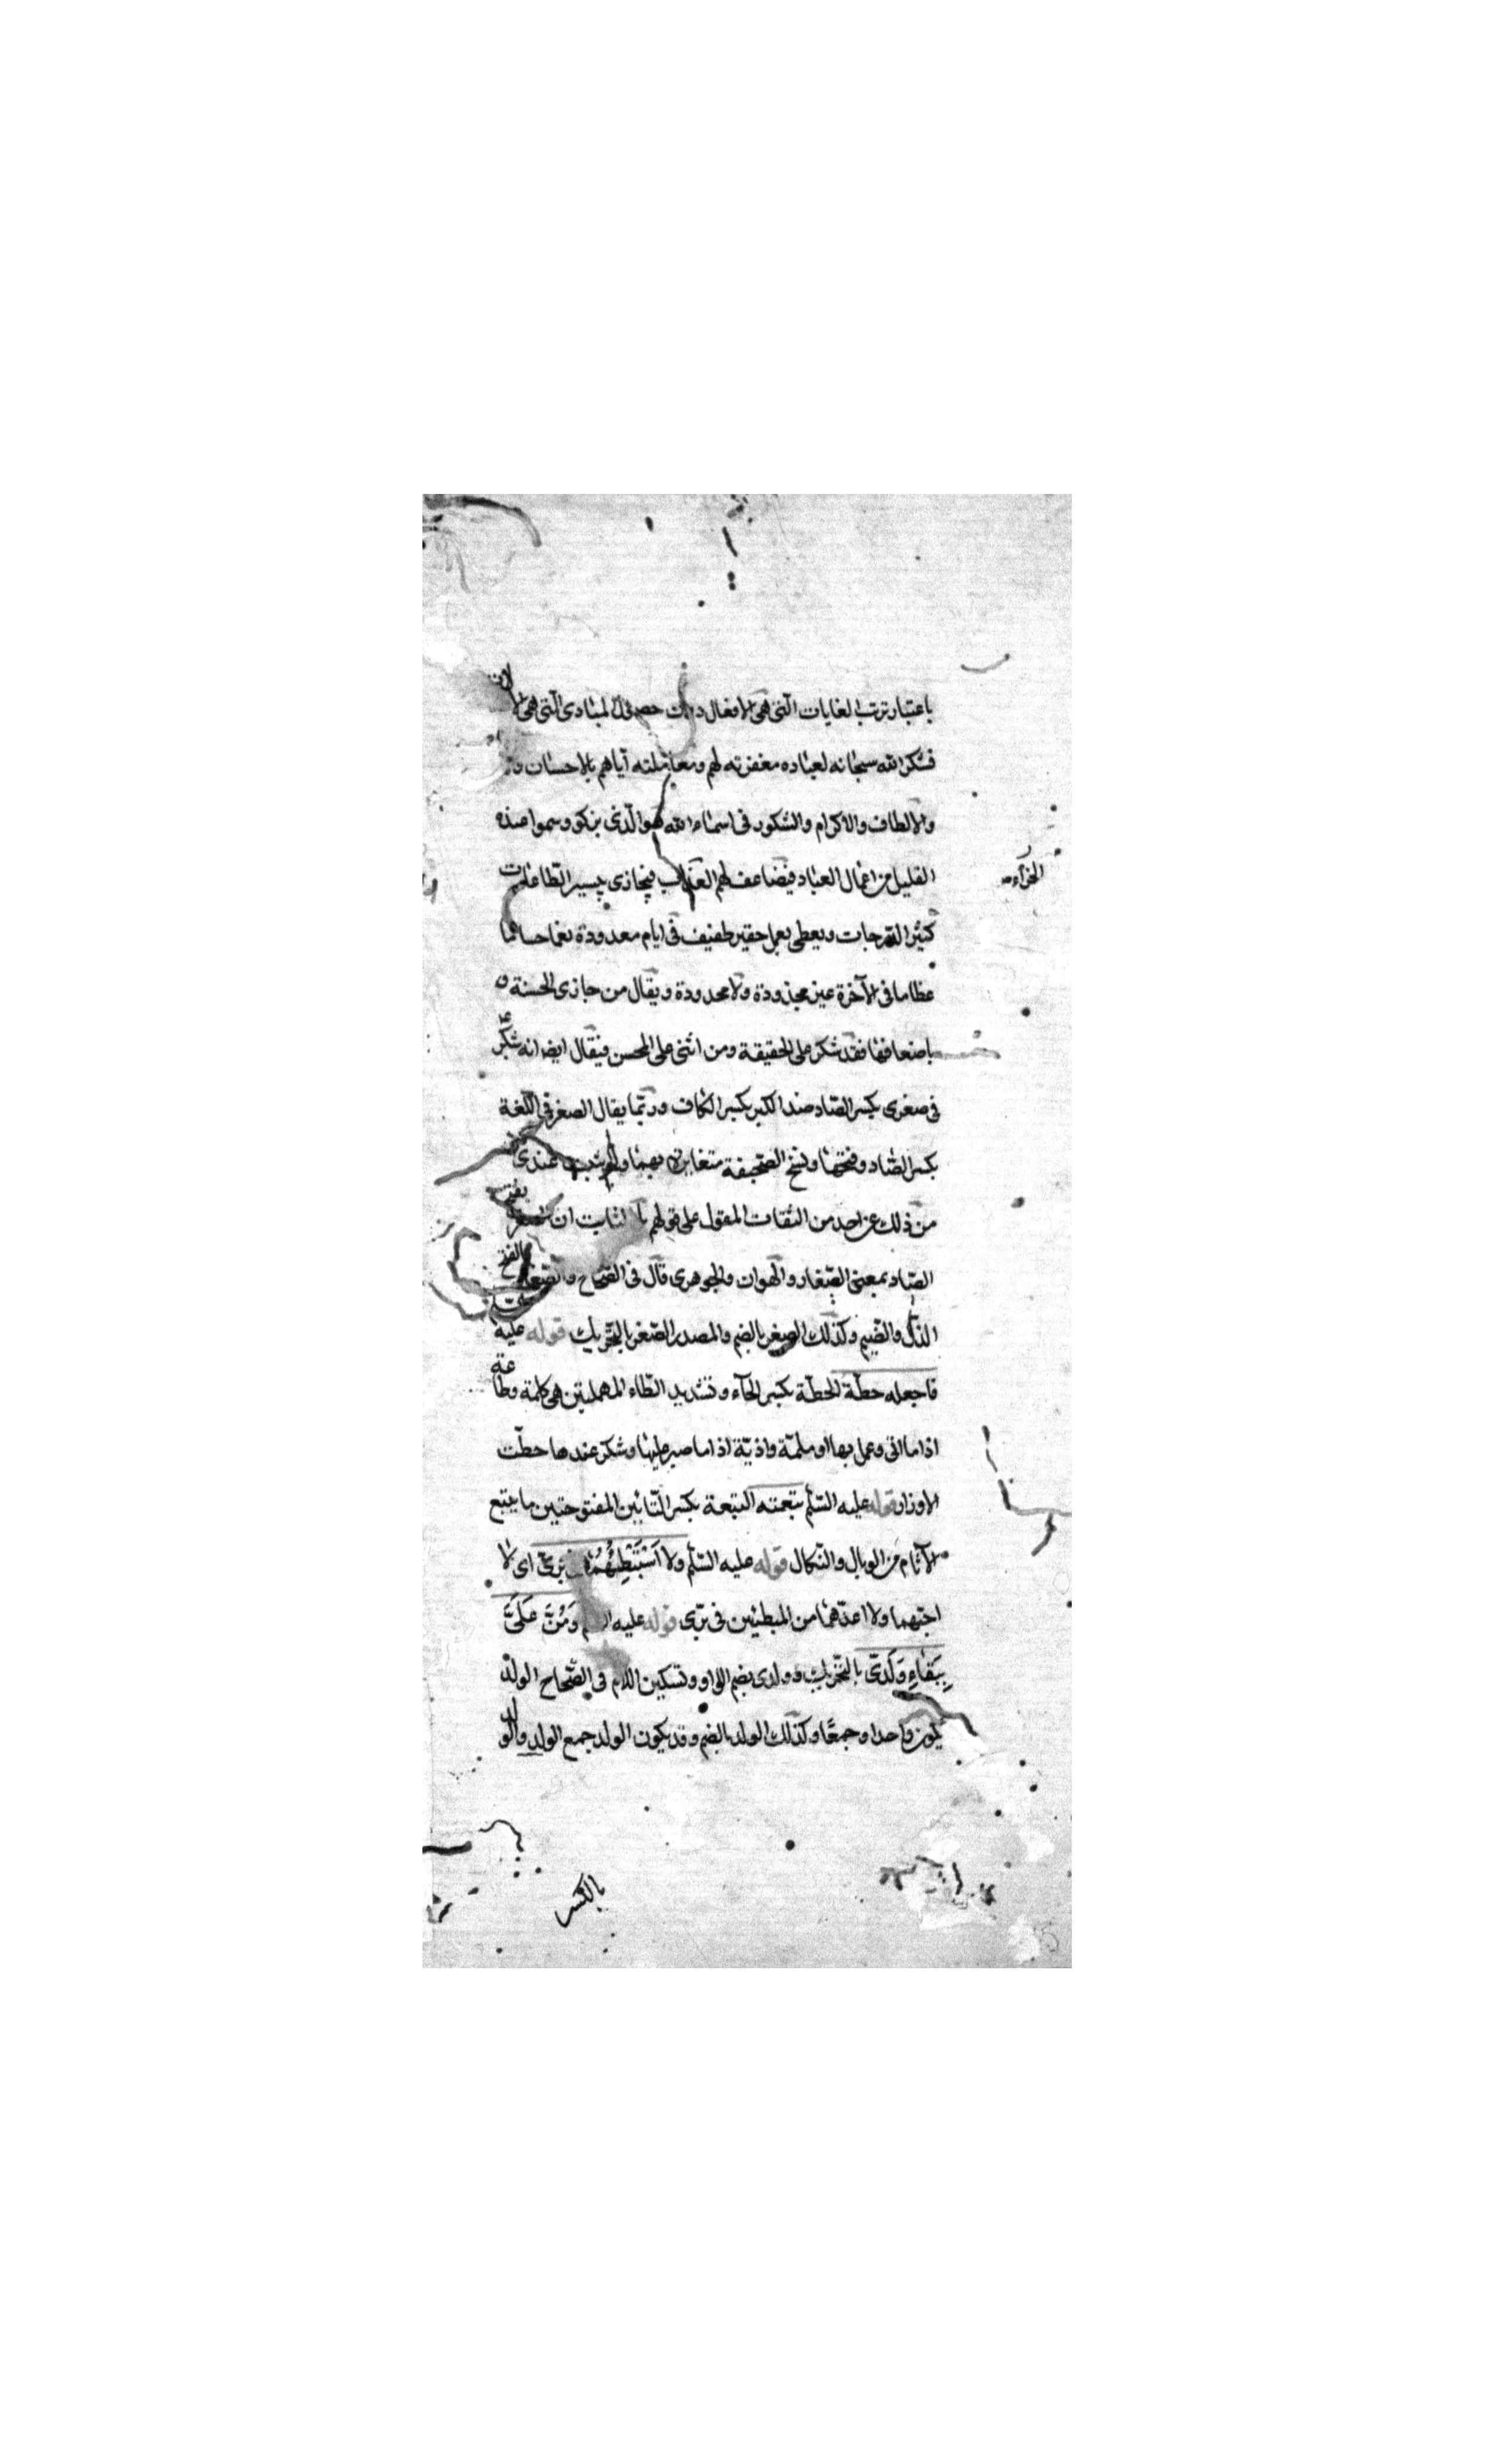 باعتبار ترتب الغايات التي هي الافعال دون حصول المبادي التي هي الا
فشكر الله سبحانه لعباده مغفرته لهم ومعاملته اياهم بالاحسان و
والالطاف والاكرام والشكور في اسماء الله هو الذي يزكو وينمو عنده
القليل من اعمال العباد فيضاعف لهم فيجازي بيسير الطاعات
الجزاء
كثير الدرجات ويعطي بعمل حقير طفيف في ايام معدودة نعما
عظاما في الآخرة غير مجذوذة ولا محدودة ويقال من جازى الحسنة
باضعافها فقد شكر على الحقيقة ومن اثنى على المحسن فيقال ايضا انه شكر
في صغري بكسر الصاد ضد الكبر بكسر الكاف وربما يقال الصغر في اللغة
بكسر الصاد وفتحها ونسخ الصحيفة متغايرة بهما ولم يثبت عندي
من ذلك عن احد من الثقات المعول على قولهم بل الثابت ان
الصاد بمعنى الصغار والهوان والجوهري قال في الصحاح والصغار بالفتح
الذل والضيم وكذلك الصغر بالضم والمصدر الصغر بالتحريك قوله عليه
فاجعله حطة الحطة بكسر الحآء وتشديد الطاء المهملتين هي كلمة وطاعة
اذا ما اتى وعمل بها او ملمة واذية اذا ما صبر عليها وشكر عندها حطت
الاوزار قوله عليه السلم تبعته التبعة بكسر التائين المفتوحتين ما يتبع
الآثام من الوبال والنكال قوله عليه السلم ولا اَسْتَبْطِئُهُمَا في بري اي لا
اجبهما ولا اعدهما من المبطئين في بري قوله عليه السلم وَمُنَّ عَلَيَّ
بِبَقَاءِ وَلَدي بالتحريك وولدي بضم الواو وتسكين اللام في الصحاح الولد
يكون واحدا وجمعا وكذلك الولد بالضم وقد يكون الولد جمع الولد والولد
بالكسر